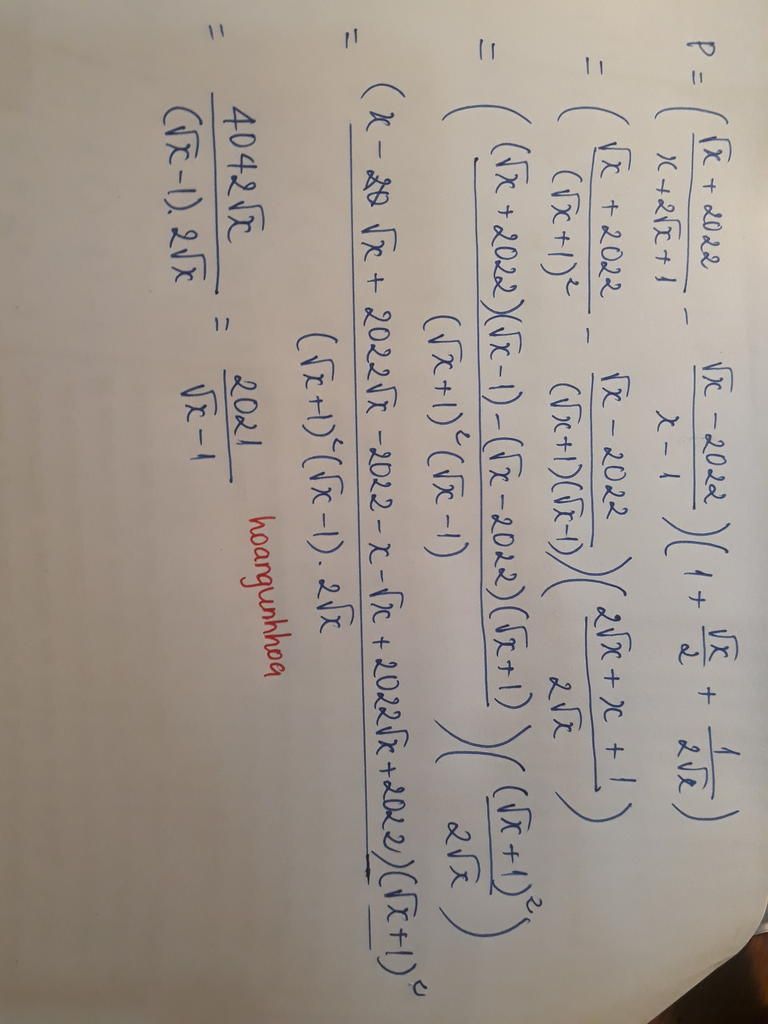 P = ( (√x + 2022)/(x + 2√x + 1) - (√x - 2022)/(x - 1) )( 1 + √x/2 + 1/(2√x) )
= ( (√x + 2022)/(√x + 1)² - (√x - 2022)/((√x + 1)(√x - 1)) )( (2√x + x + 1)/(2√x) )
= ( ((√x + 2022)(√x - 1) - (√x - 2022)(√x + 1))/((√x + 1)²(√x - 1)) )( (√x + 1)²/(2√x) )
= (x - √x + 2022√x - 2022 - x - √x + 2022√x + 2022)(√x + 1)²/((√x + 1)²(√x - 1). 2√x)
= 4042√x/((√x - 1). 2√x) = 2021/(√x - 1)
hoangunhhoa